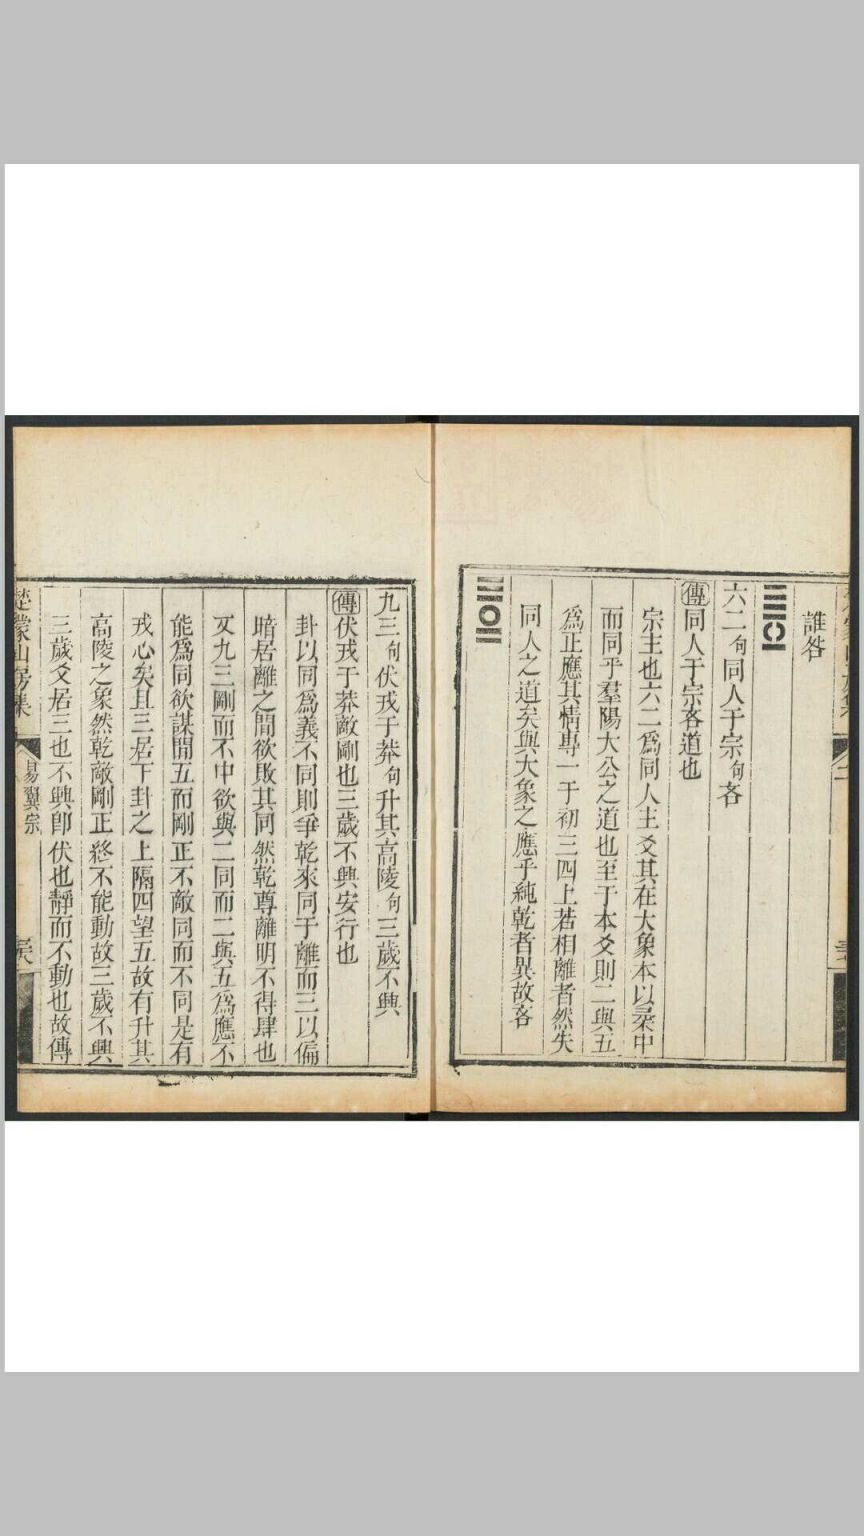 誰咎
六二句同人于宗句吝
傳同人于宗吝道也
宗主也六二為同人主爻其在大象本以柔中
而同乎羣陽大公之道也至于本爻則二與五
為正應其情專一于初三四上若相離者然失
同人之道矣與大象之應乎純乾者異故吝
九三句伏戎于莽句升其高陵句三歲不興
傳伏戎于莽敵剛也三歲不興安行也
卦以同為義不同則爭乾來同于離而三以偏
暗居離之間欲敗其同然乾尊離明不得肆也
又九三剛而不中欲與二同而二與五為應不
能為同欲謀間五而剛正不敵同而不同是有
戎心矣且三居下卦之上隔四望五故有升其
高陵之象然乾敵剛正終不能動故三歲不興
三歲爻居三也不興卽伏也靜而不動也故傳
楚蒙山房集
易翼宗